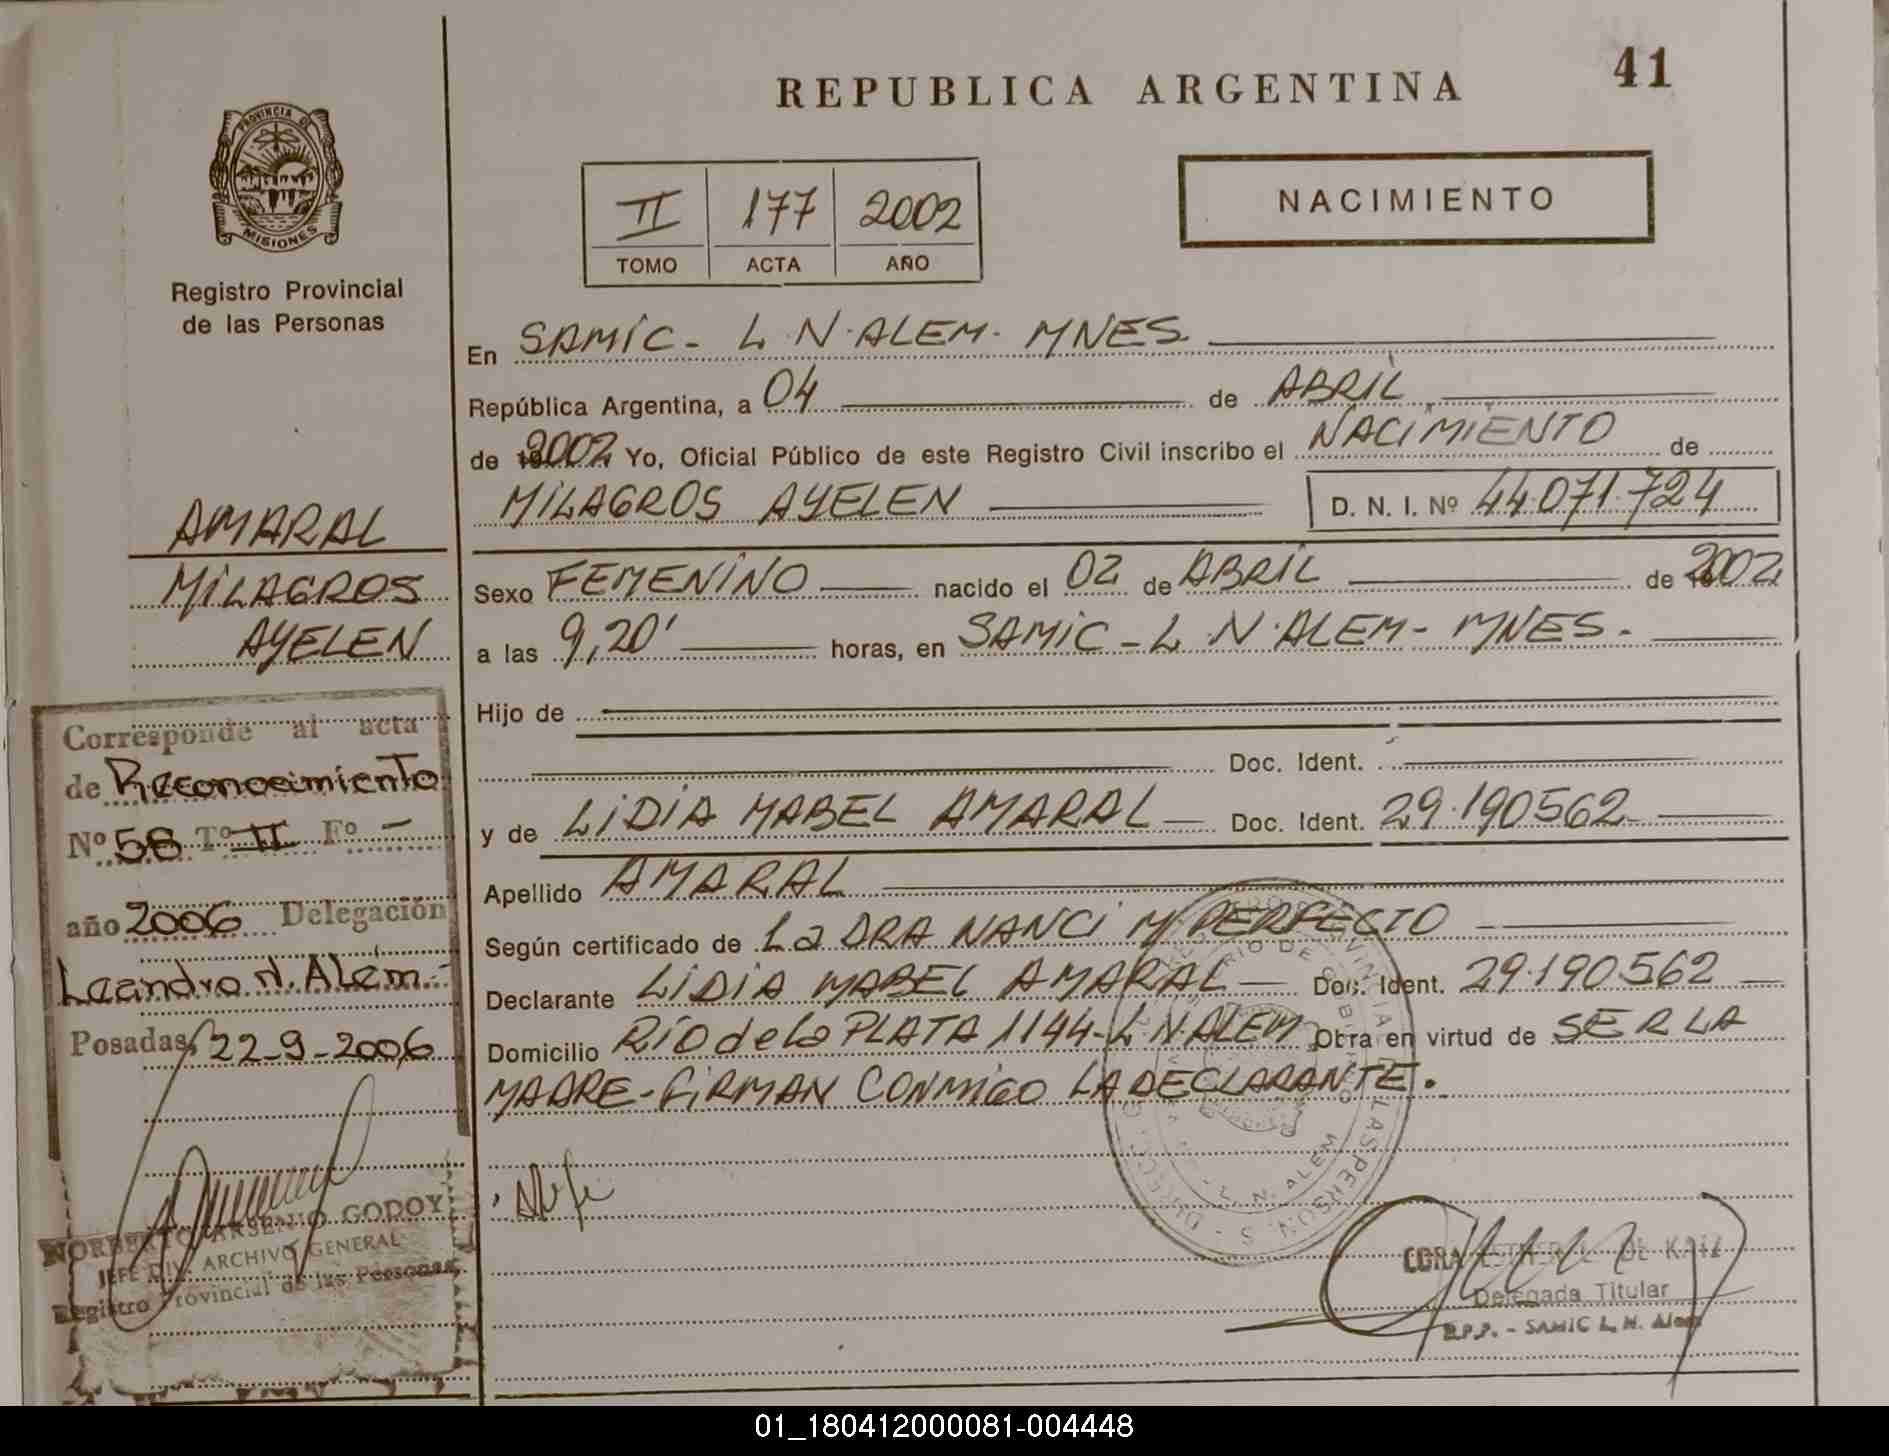 REPUBLICA ARGENTINA
41
PROVINCIA DE
MISIONES
Registro Provincial
de las Personas
II 177 2002
TOMO ACTA AÑO
NACIMIENTO
En SAMIC - L N. ALEM. MNES
República Argentina, a 04 de ABRIL
de 2002 Yo, Oficial Público de este Registro Civil inscribo el NACIMIENTO de
MILAGROS AYELEN D. N. I. Nº 44.071.724
Sexo FEMENINO nacido el 02 de ABRIL de 2002
a las 9,20' horas, en SAMIC - L. N. ALEM - MNES.
Hijo de
Doc. Ident.
y de LIDIA MABEL AMARAL Doc. Ident. 29.190562
Apellido AMARAL
Según certificado de La DRA NANCI M PERFECTO
Declarante LIDIA MABEL AMARAL Doc. Ident. 29.190562
Domicilio RIO de La PLATA 1144 - L N. ALEM Obra en virtud de SER LA
MADRE - FIRMAN CONMIGO LA DECLARANTE.
Delegada Titular
R.P.P. - SAMIC L. N. Alem
AMARAL
MILAGROS
AYELEN
Corresponde al acta
de Reconocimiento
Nº 58 Tº II Fº -
año 2006 Delegación
Leandro N. Alem.-
Posadas, 22-9-2006
NORBERTO ARSENIO GODOY
JEFE DIV. ARCHIVO GENERAL
Registro Provincial de las Personas
01_180412000081-004448